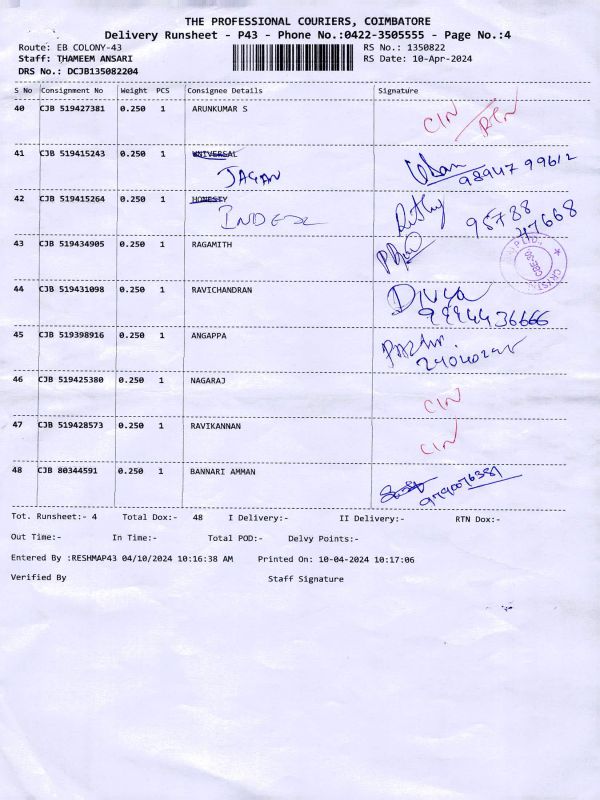 THE PROFESSIONAL COURIERS, COIMBATORE
Delivery Runsheet - P43 - Phone No.:0422-3505555 - Page No.:4
Route: EB COLONY-43 RS No.: 1350822
Staff: THAMEEM ANSARI RS Date: 10-Apr-2024
DRS No.: DCJB135082204
S No Consignment No Weight PCS Consignee Details Signature
40 CJB 519427381 0.250 1 ARUNKUMAR S CIN/RTN
41 CJB 519415243 0.250 1 UNIVERSAL
JAGAN 98947 99612
42 CJB 519415264 0.250 1 HONESTY
INDEX 95788
47668
43 CJB 519434905 0.250 1 RAGAMITH
44 CJB 519431098 0.250 1 RAVICHANDRAN Divya
9994436666
45 CJB 519398916 0.250 1 ANGAPPA
46 CJB 519425380 0.250 1 NAGARAJ CIN
47 CJB 519428573 0.250 1 RAVIKANNAN CIN
48 CJB 80344591 0.250 1 BANNARI AMMAN 9790076381
Tot. Runsheet:- 4 Total Dox:- 48 I Delivery:- II Delivery:- RTN Dox:-
Out Time:- In Time:- Total POD:- Delvy Points:-
Entered By :RESHMAP43 04/10/2024 10:16:38 AM Printed On: 10-04-2024 10:17:06
Verified By Staff Signature